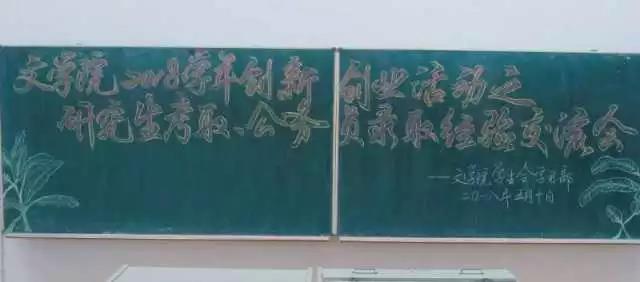 文学院2018学年创新创业活动之
研究生考取、公务员录取经验交流会
——文学院学生会学习部
二〇一八年五月十日